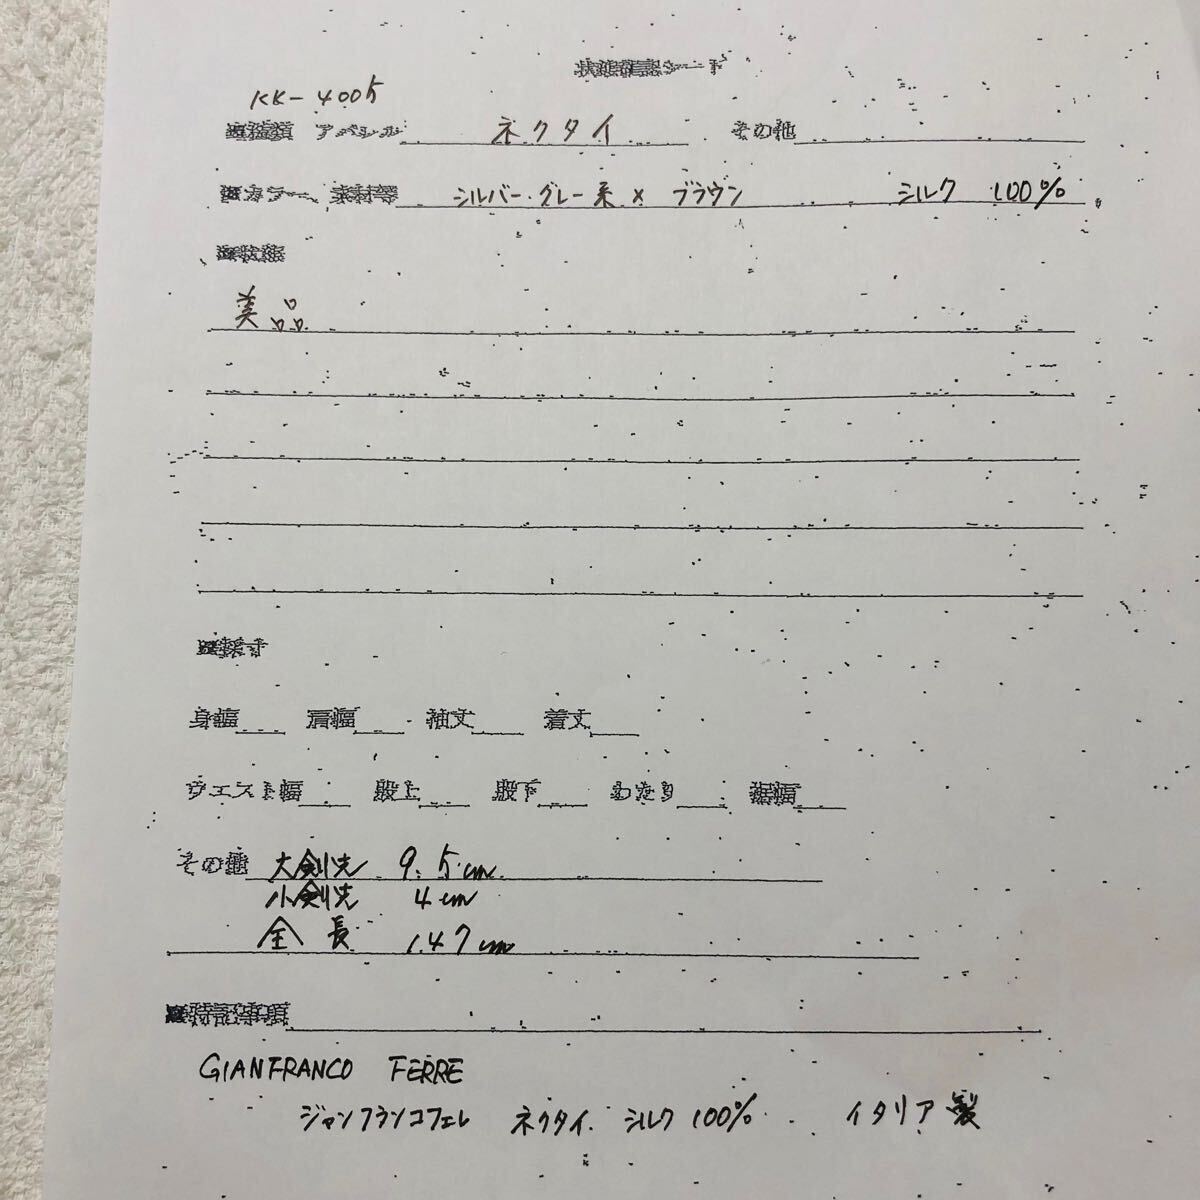 状態確認シート
KK-4005
■種類 アパレル ネクタイ その他
■カラー、素材等 シルバー・グレー系 × ブラウン シルク 100%
■状態
美品
■採寸
身幅 肩幅 袖丈 着丈
ウエスト幅 股上 股下 わたり 裾幅
その他 大剣先 9.5cm
小剣先 4cm
全長 147cm
■特記事項
GIANFRANCO FERRE
ジャンフランコフェレ ネクタイ シルク 100% イタリア製